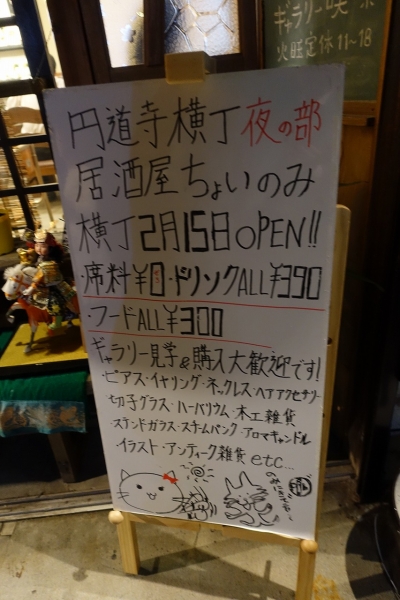 ギャラリー咲
火曜定休 11~18
円道寺横丁 夜の部
居酒屋ちょいのみ
横丁 2月15日OPEN!!
・席料¥0・ドリンクALL¥390
・フードALL¥300
ギャラリー見学&購入大歓迎です!
ピアス・イヤリング・ネックレス・ヘアアクセサリー
切子グラス・ハーバリウム・木工雑貨
ステンドガラス・スチームパンク・アロマキャンドル
イラスト・アンティーク雑貨 etc...